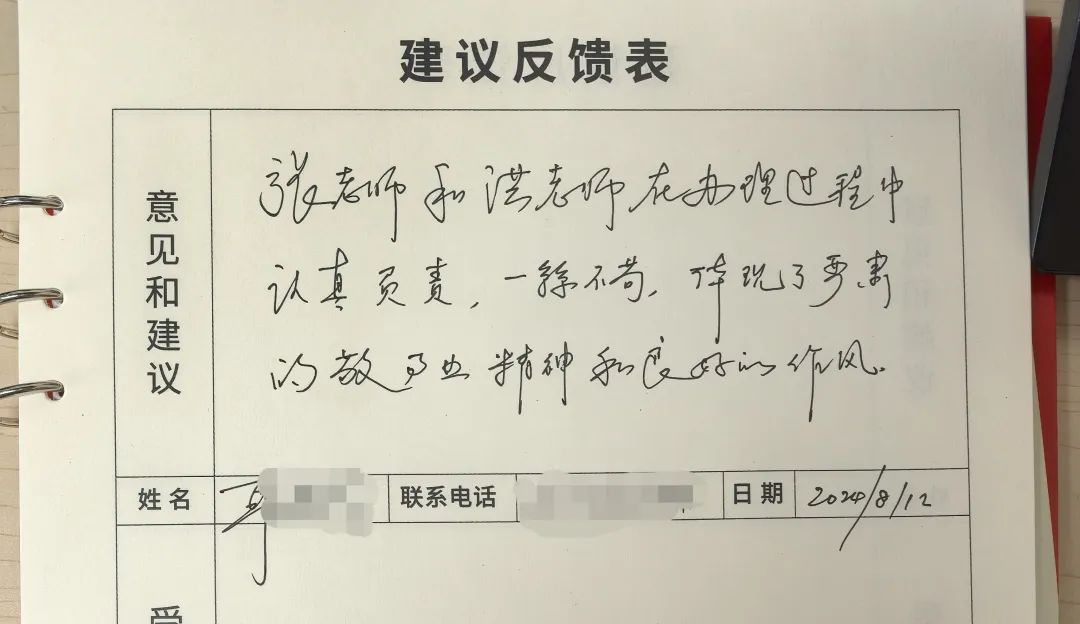 建议反馈表
意见和建议
张老师和洪老师在办理过程中
认真负责，一丝不苟，体现了严肃
的敬业精神和良好的作风。
姓名
联系电话
日期
2024/8/12